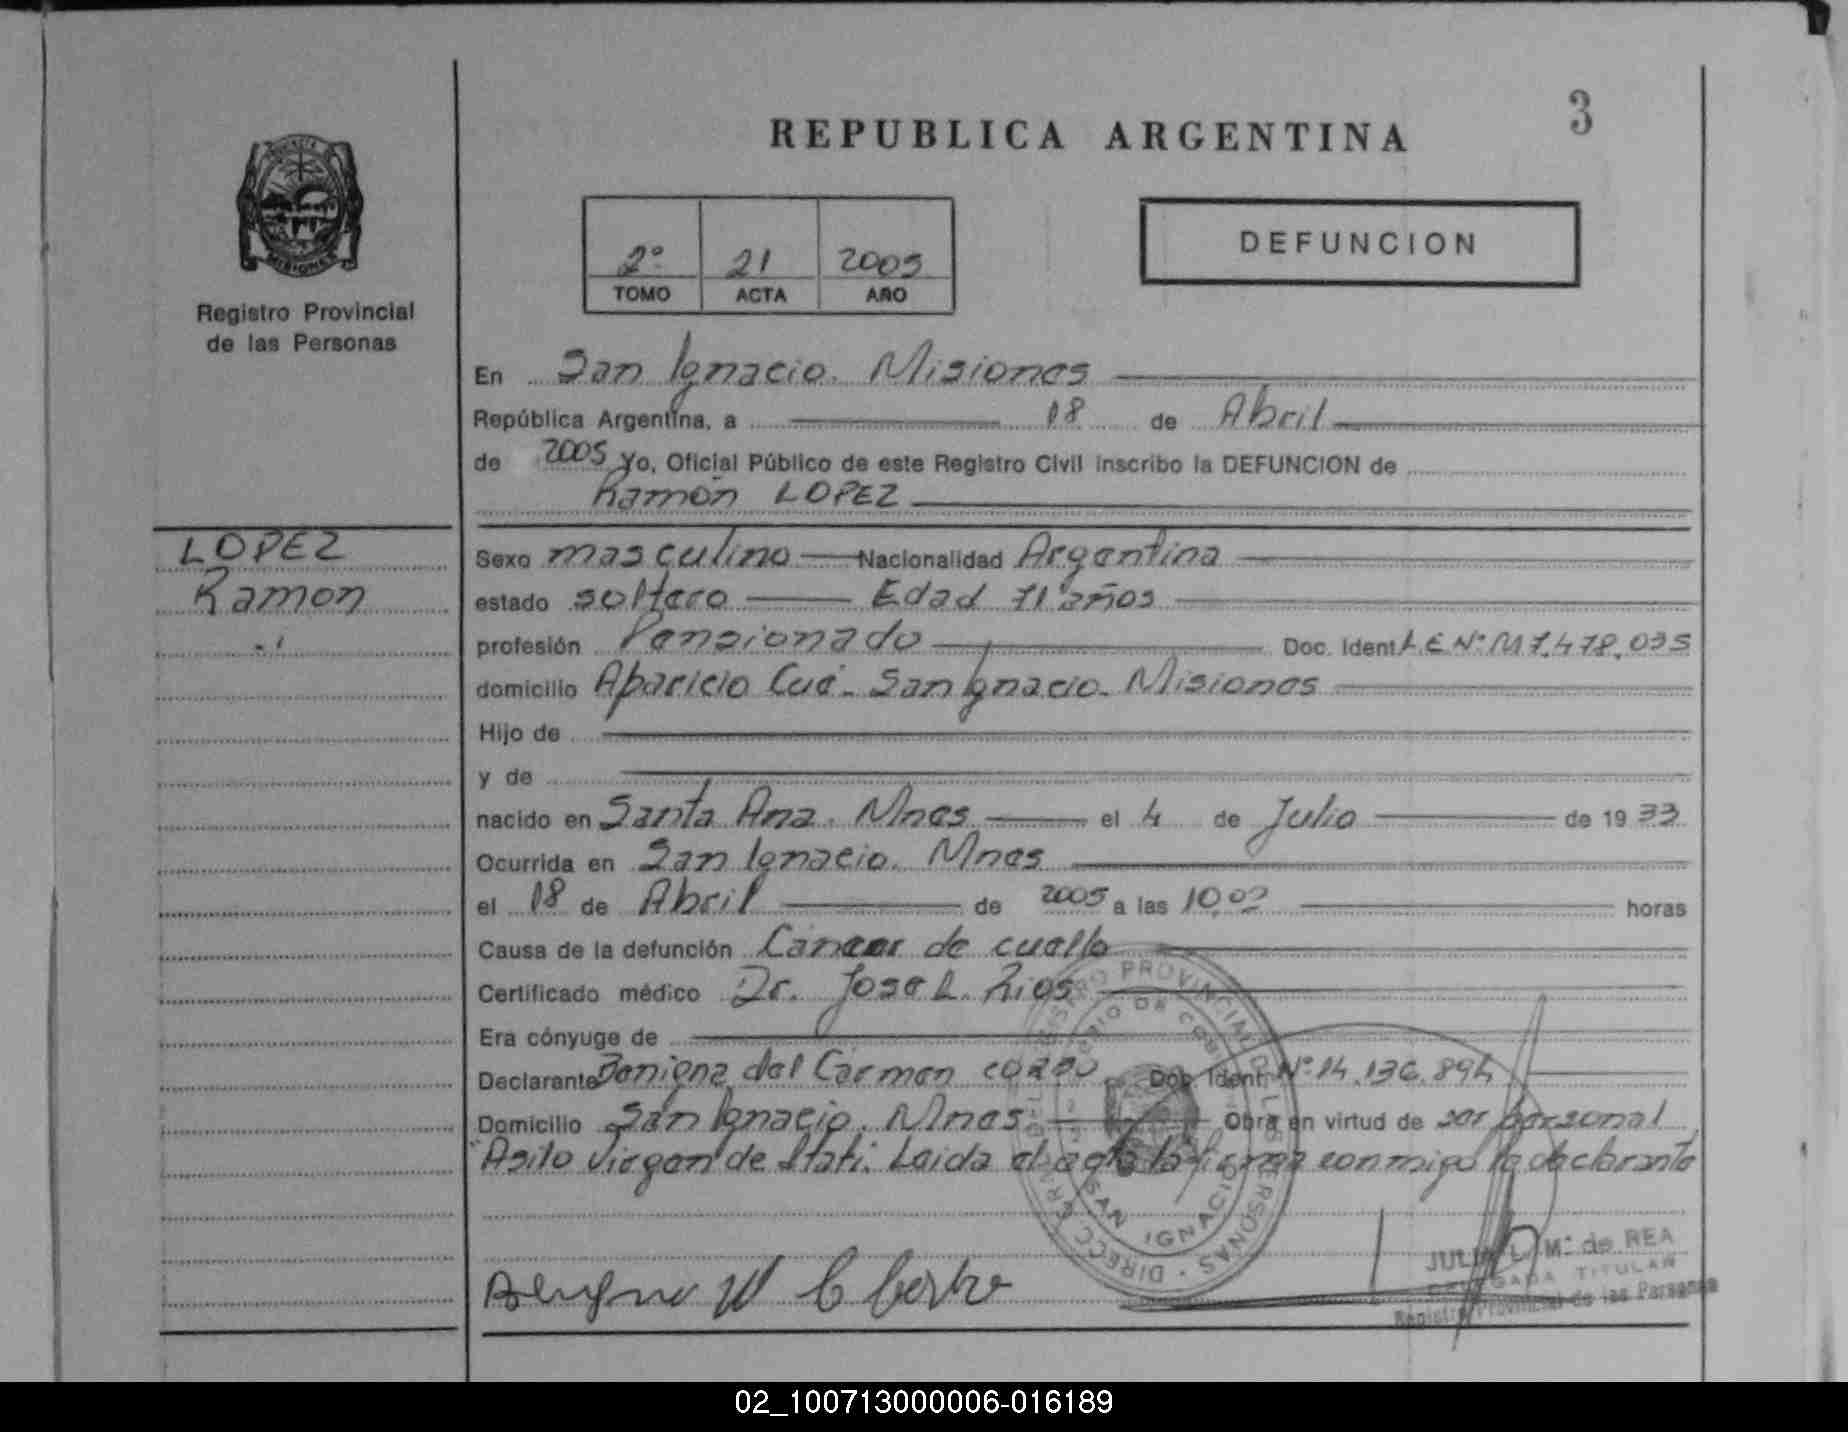 3
REPUBLICA ARGENTINA
DEFUNCION
2º 21 2005
TOMO ACTA AÑO
PROVINCIA DE
MISIONES
Registro Provincial
de las Personas
En San Ignacio. Misiones
República Argentina, a 18 de Abril
de 2005 Yo, Oficial Público de este Registro Civil inscribo la DEFUNCION de
Ramón LOPEZ
LOPEZ
Ramon
Sexo masculino Nacionalidad Argentina
estado soltero Edad 71 años
profesión Pensionado Doc. Ident L.E Nº M7.478.035
domicilio Aparicio Cué - San Ignacio. Misiones
Hijo de
y de
nacido en Santa Ana. Mnes el 4 de Julio de 1933
Ocurrida en San Ignacio. Mnes
el 18 de Abril de 2005 a las 10,00 horas
Causa de la defunción Cancer de cuello
Certificado médico Dr. Jose L. Rios
Era cónyuge de
Declarante Benigna del Carmen Doc. Ident. Nº 14.136.894
Domicilio San Ignacio. Mnes Obra en virtud de ser personal
Asilo Virgen de Itati. Leida el acta la firma conmigo la declarante
SAN IGNACIO
JULIA L. M. de REA
DELEGADA TITULAR
Registro Provincial de las Personas
02_100713000006-016189